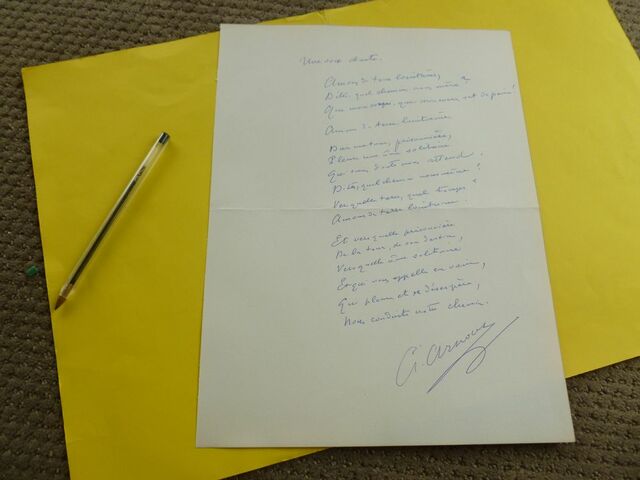 Une voix chante.
Amour de terre lointaine,
Dites, quel chemin nous mène ?
Que mon que mon cœur ont de peine !
Amour de terre lointaine
Dans sa tour, prisonnière,
Pleure une âme solitaire
Que sans doute nous attend.
Dites, quel chemin nous mène ?
Vers quelle terre, quel temps ?
Amour de terre lointaine.
Et vers quelle prisonnière
De la tour, de son destin,
Vers quelle âme solitaire
Et qui nous appelle en vain,
Qui pleure et se désespère,
Nous conduit notre chemin.
A. Arnoux